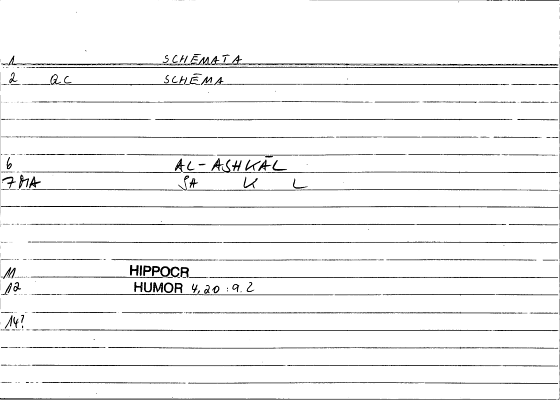 1 SCHĒMATA
2 QC SCHĒMA
6 AL-ASHKĀL
7 MA SA K L
11 HIPPOCR
12 HUMOR 4,20 : 9.2
14?